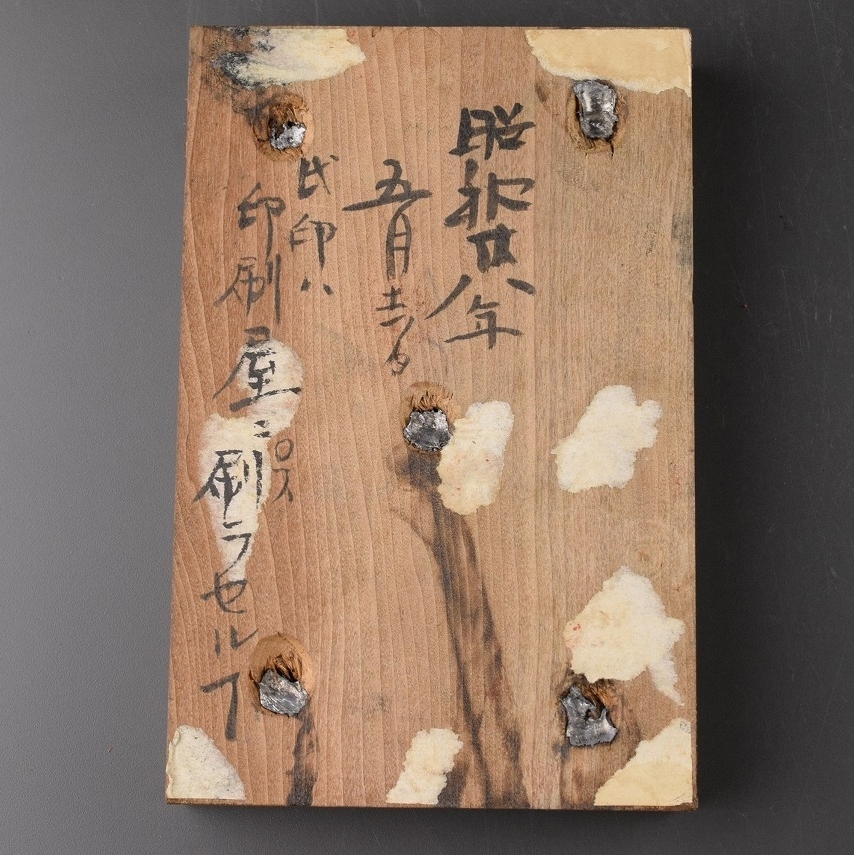 昭和廿八年
五月
氏印ハ
印刷屋ニ刷ラセルヿ